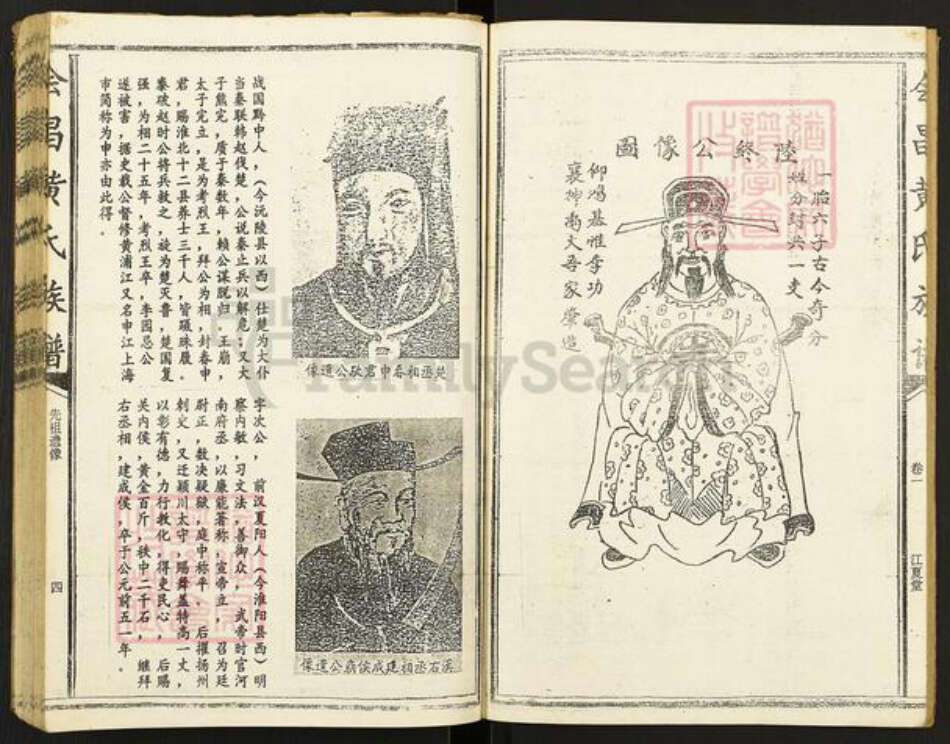 会昌黄氏族谱
卷一
江夏堂
陸終公像圖
一胎六子古今奇分
姓分封共一支
仰鴻基惟季功
襄坤南大吾家肇造
楚丞相春申君歇公遺像
战国黔中人，（今沅陵县以西）仕楚为大仆
当秦联韩赵伐楚，公说秦止兵以解危；又太
子熊完，质于秦数年，赖公谋脱归，王崩，
太子完立，是为考烈王，拜公为相，封春申
君，赐淮北十二县养士三千人，皆蹑珠履。
秦破赵时公将兵救之，旋为楚灭鲁，楚国复
强，为相二十五年，考烈王卒，李园忌公
遂被害，据史载公督修黄浦江又名申江上海
市简称为申亦由此得。
漢右丞相建成侯霸公遺像
字次公，前汉夏阳人（今淮阳县西）明
察内敏，习文法，善御众，武帝时官河
南府丞，以廉能著称，宣帝立，召为廷
尉正，数决疑狱，庭中称平，后擢扬州
刺史，又迁颍川太守，赐车盖特高一丈，
以彰有德，力行教化，得吏民心，后赐
关内侯，黄金百斤，秩中二千石，继拜
右丞相，建成侯，卒于公元前五一年。
会昌黄氏族谱
先祖遗像
四
FamilySearch